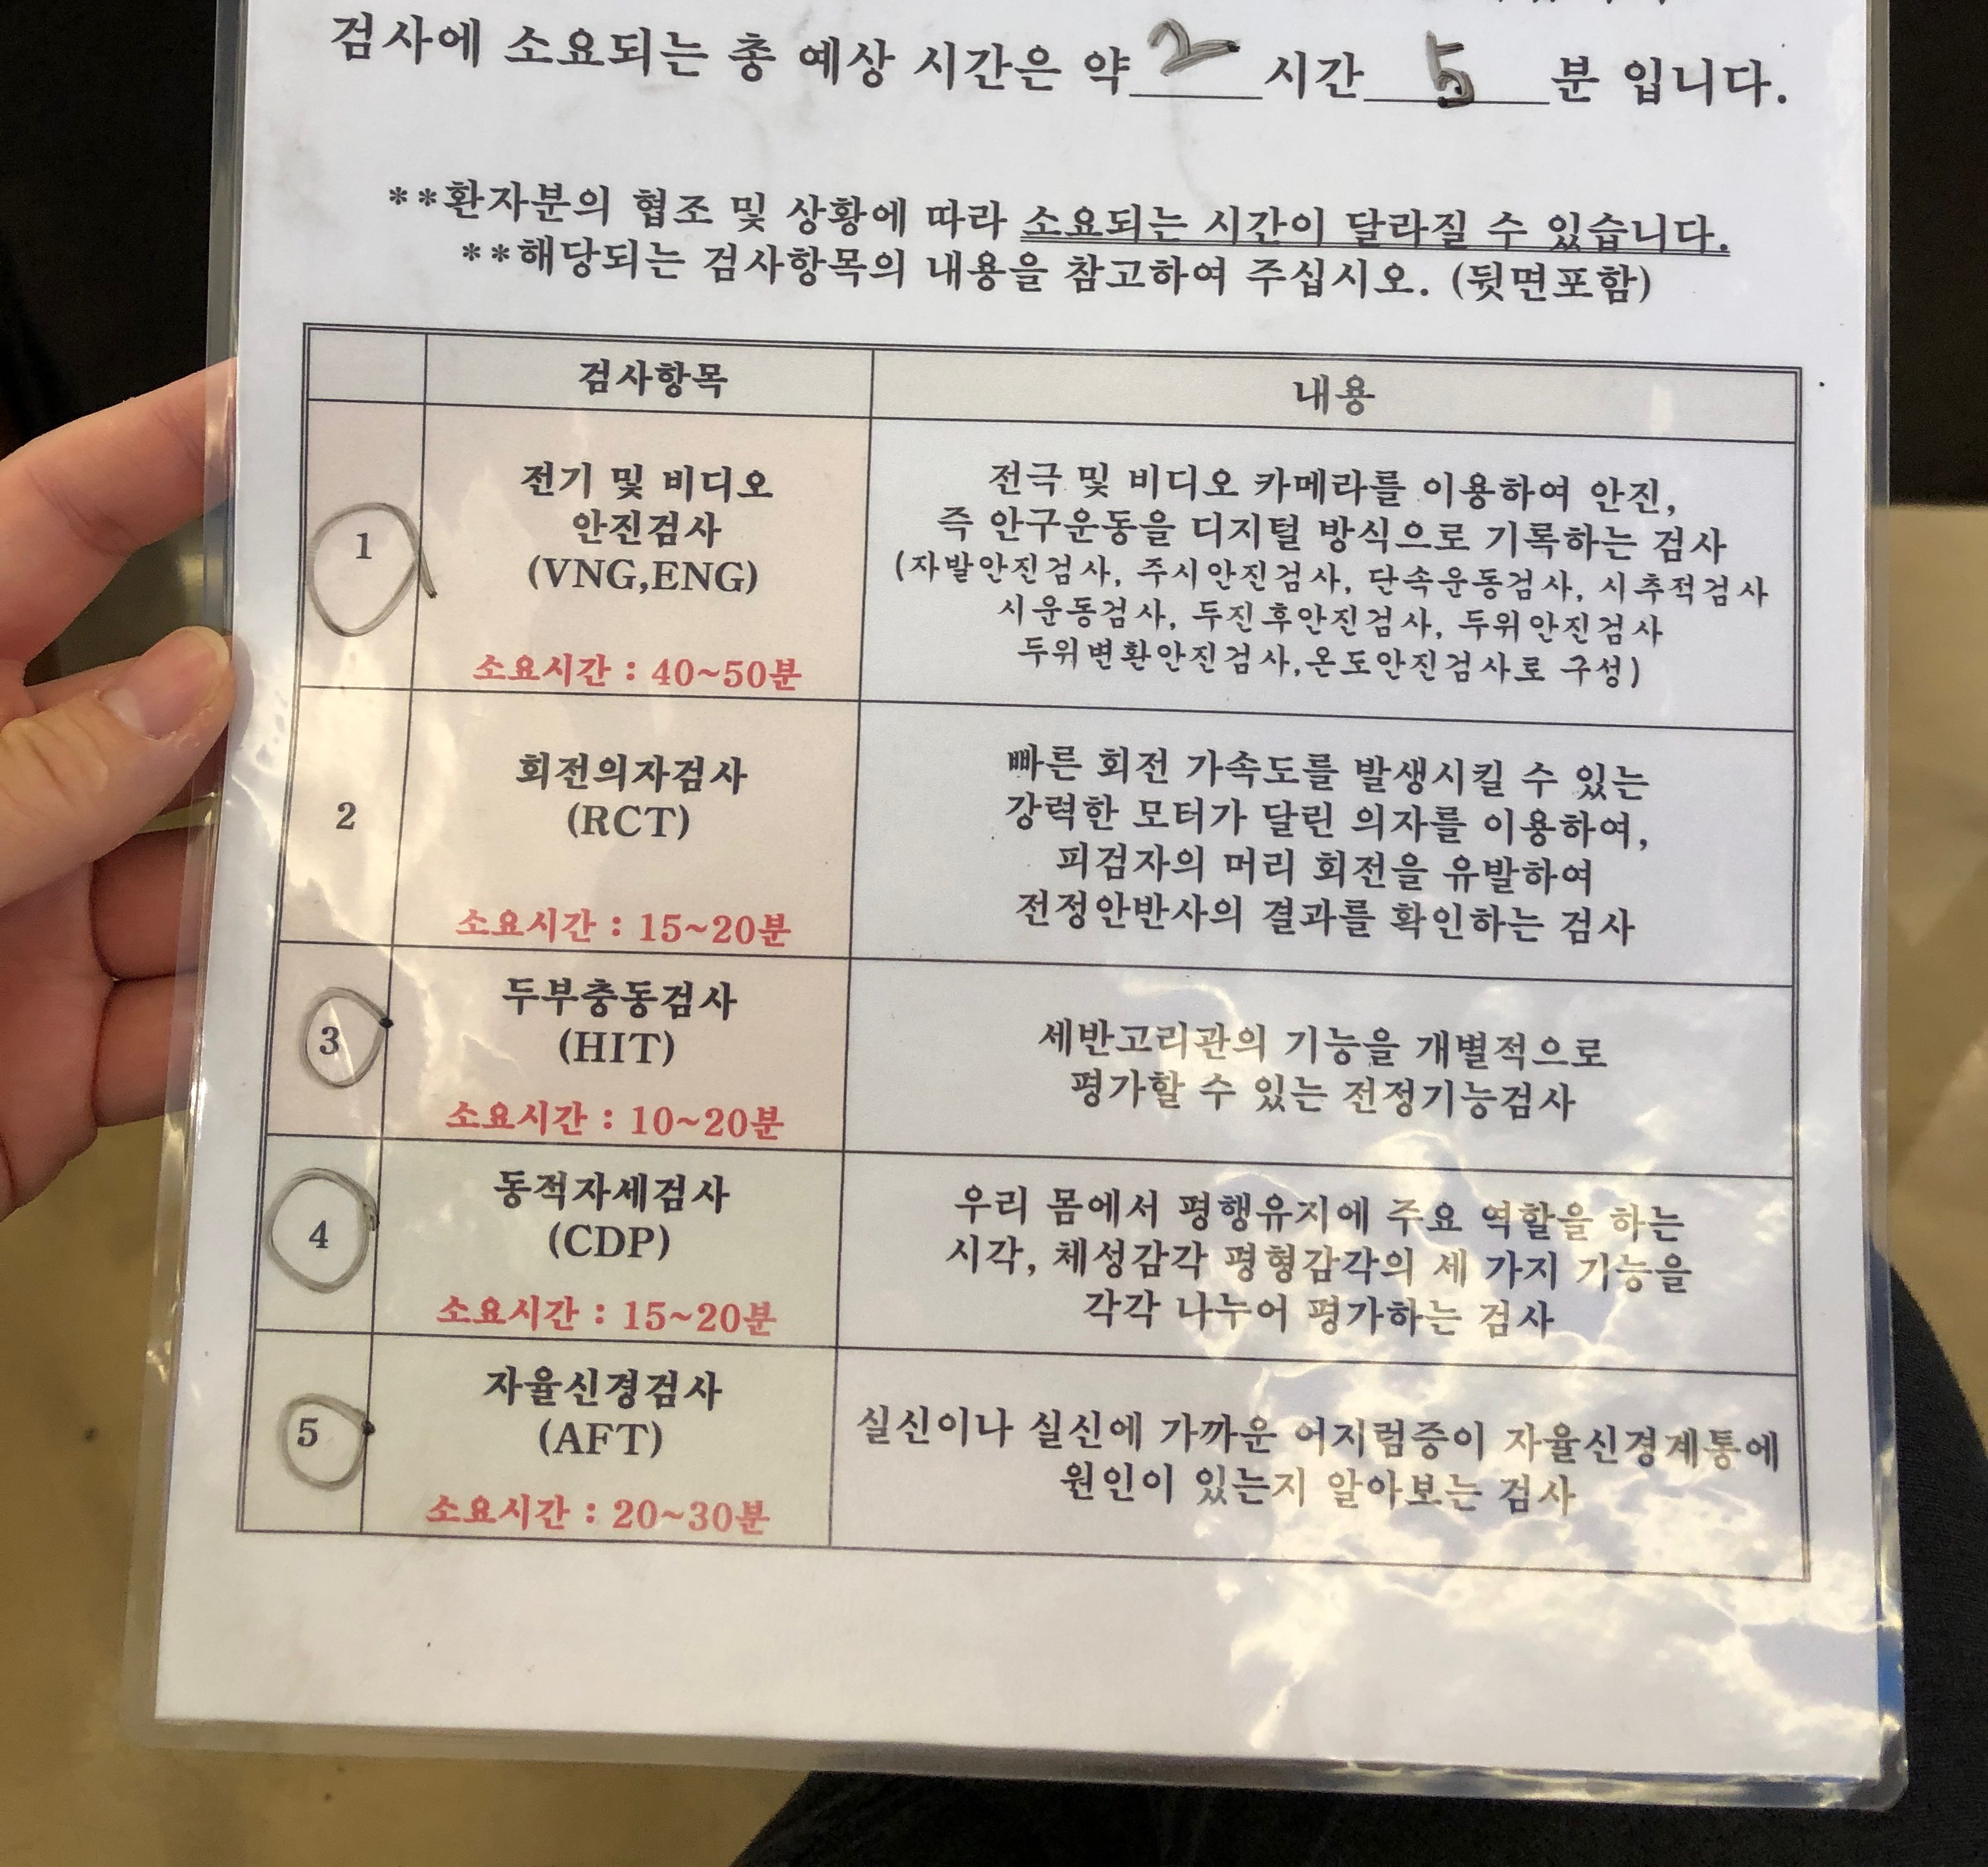 검사에 소요되는 총 예상 시간은 약 2 시간 5 분 입니다.
**환자분의 협조 및 상황에 따라 소요되는 시간이 달라질 수 있습니다.
**해당되는 검사항목의 내용을 참고하여 주십시오. (뒷면포함)
검사항목
내용
1
전기 및 비디오
안진검사
(VNG,ENG)
소요시간 : 40~50분
전극 및 비디오 카메라를 이용하여 안진,
즉 안구운동을 디지털 방식으로 기록하는 검사
(자발안진검사, 주시안진검사, 단속운동검사, 시추적검사
시운동검사, 두진후안진검사, 두위안진검사
두위변환안진검사,온도안진검사로 구성)
2
회전의자검사
(RCT)
소요시간 : 15~20분
빠른 회전 가속도를 발생시킬 수 있는
강력한 모터가 달린 의자를 이용하여,
피검자의 머리 회전을 유발하여
전정안반사의 결과를 확인하는 검사
3
두부충동검사
(HIT)
소요시간 : 10~20분
세반고리관의 기능을 개별적으로
평가할 수 있는 전정기능검사
4
동적자세검사
(CDP)
소요시간 : 15~20분
우리 몸에서 평행유지에 주요 역할을 하는
시각, 체성감각 평형감각의 세 가지 기능을
각각 나누어 평가하는 검사
5
자율신경검사
(AFT)
소요시간 : 20~30분
실신이나 실신에 가까운 어지럼증이 자율신경계통에
원인이 있는지 알아보는 검사